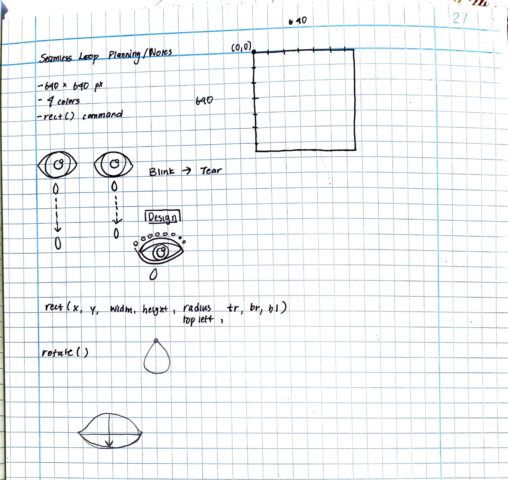 27
640
(0,0)
Seamless Loop Planning/Notes
- 640 x 640 px
- 4 colors
- rect() command
640
Blink → Tear
Design
rect(x, y, width, height, radius tr, br, bl)
top left,
rotate()